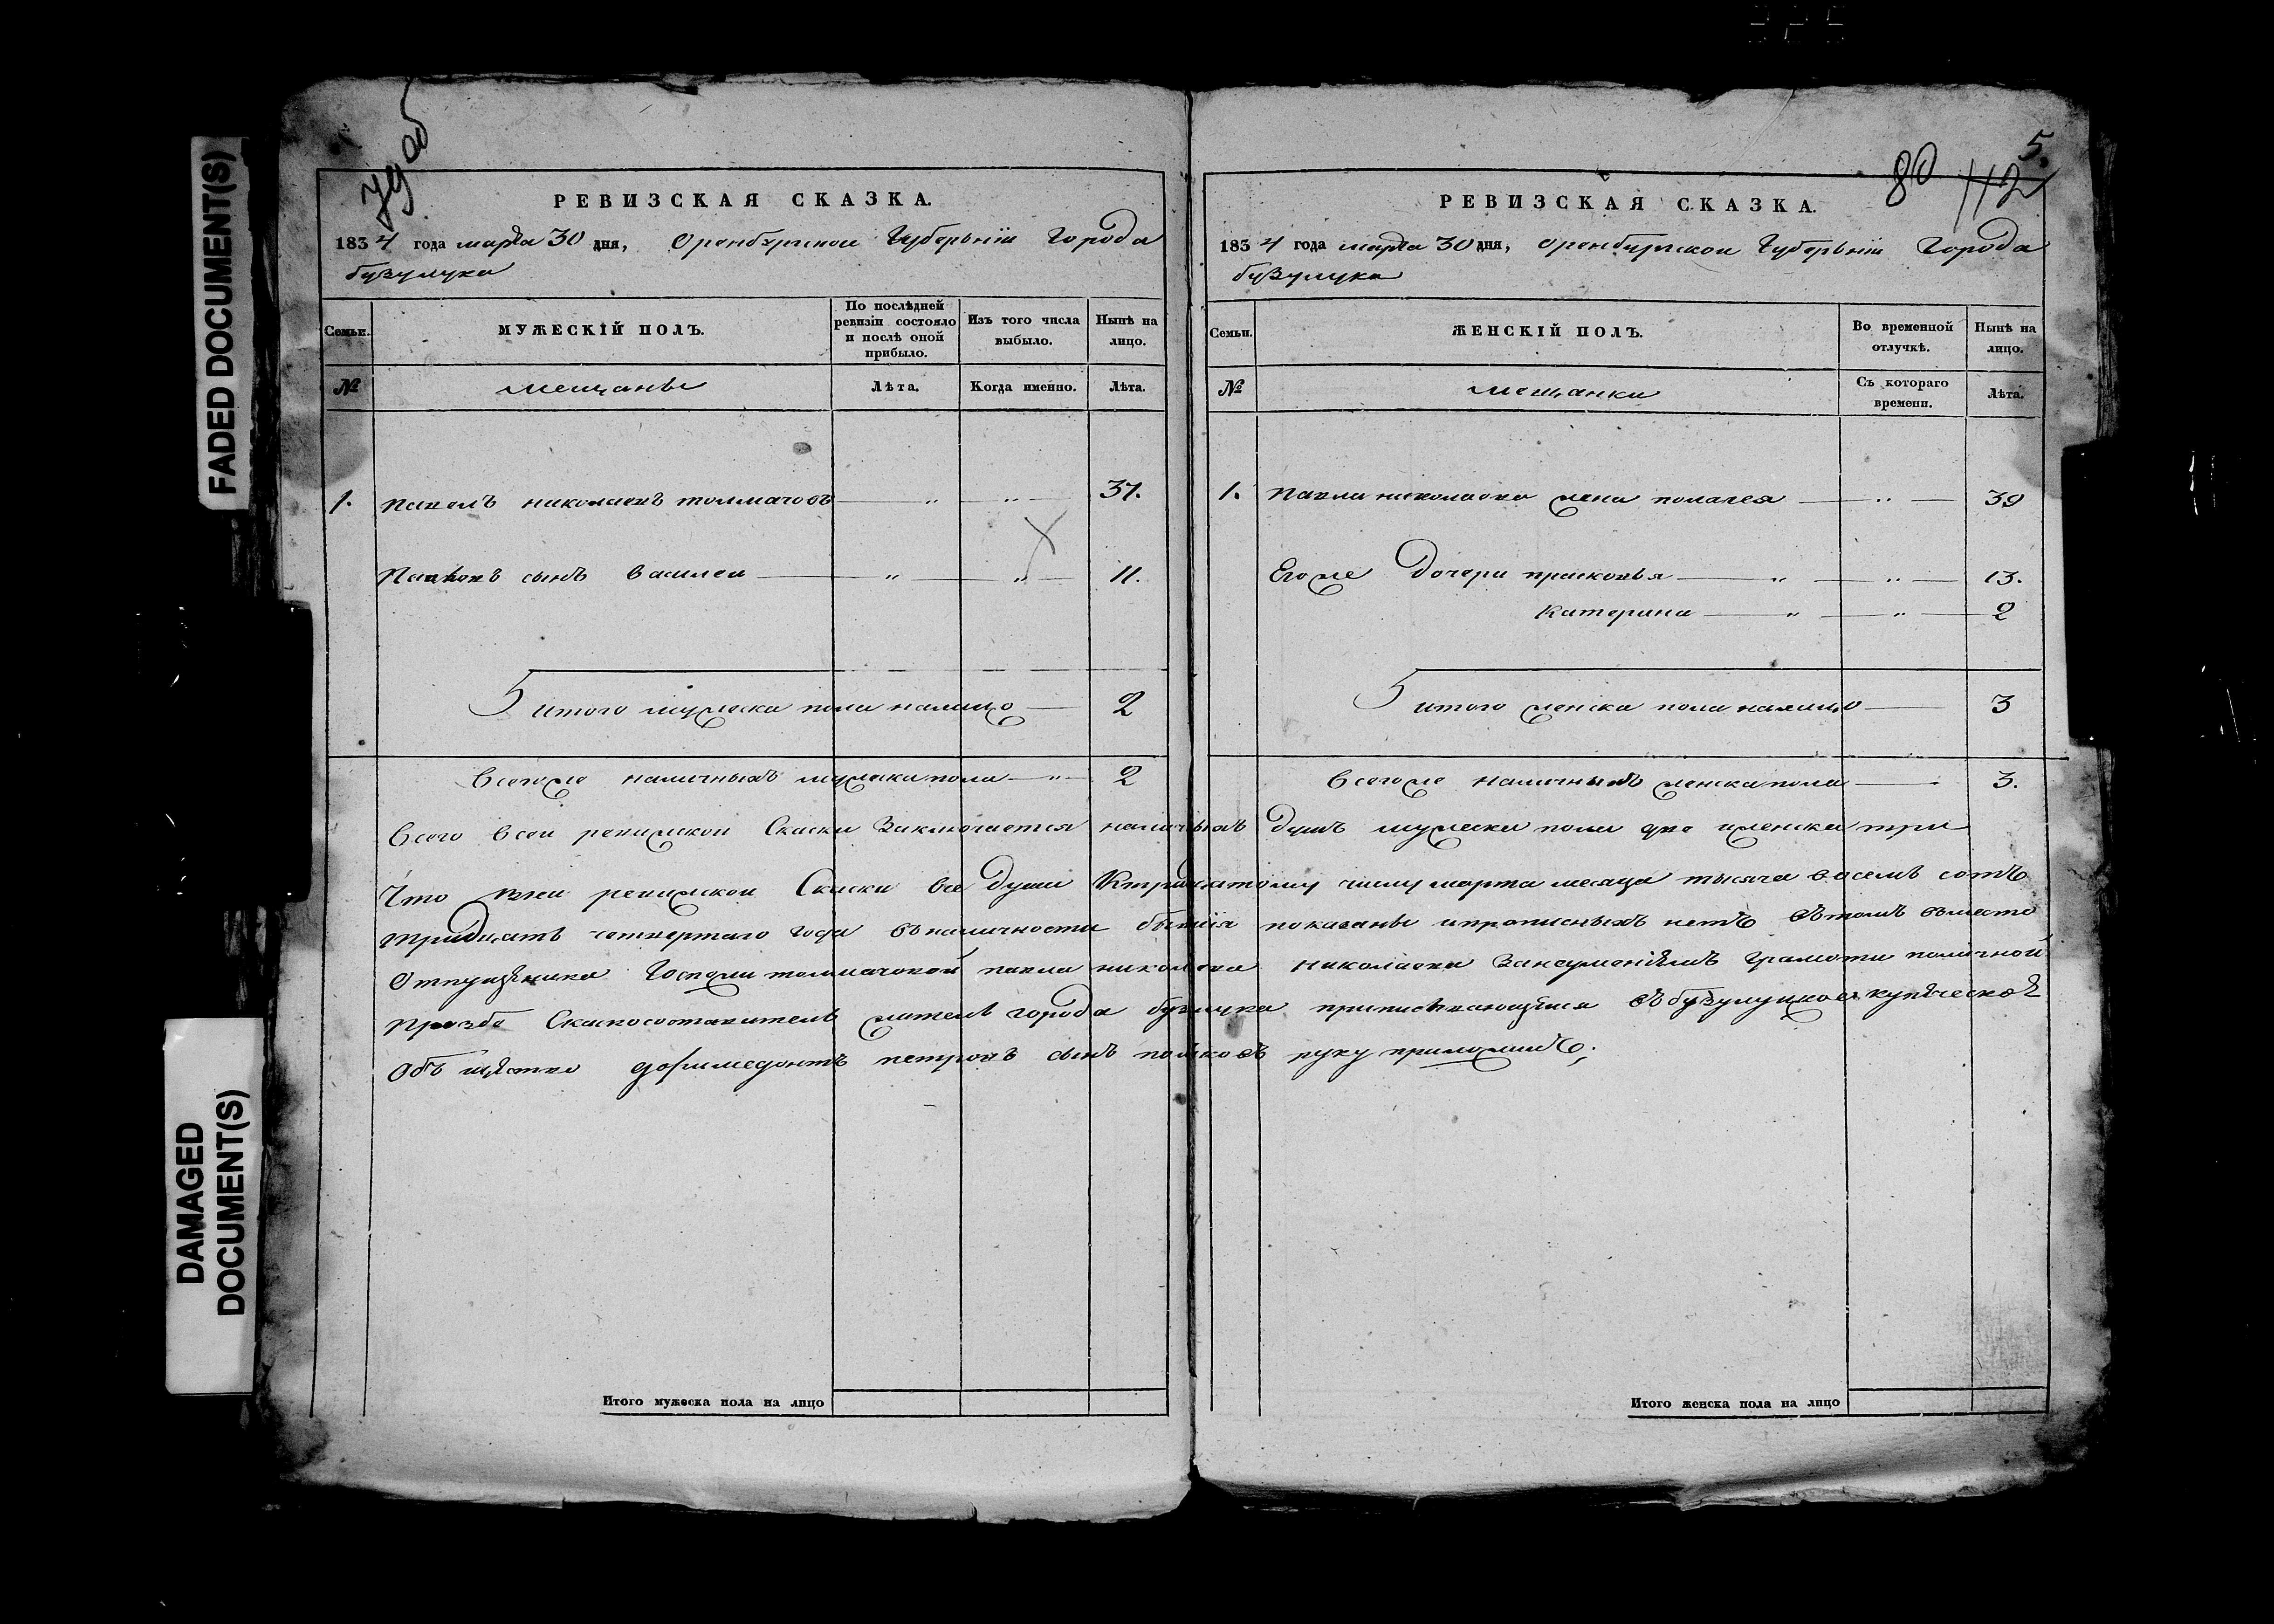 FADED DOCUMENT(S)
DAMAGED
DOCUMENT(S)
79 об
РЕВИЗСКАЯ СКАЗКА.
1834 года марта 30 дня, Оренбургской Губернїи Города
бузулука
Семьи.
МУЖЕСКІЙ ПОЛЪ.
По послѣдней ревизіи состояло и послѣ оной прибыло.
Изъ того числа выбыло.
Нынѣ на лицо.
№
мещаны
Лѣта.
Когда именно.
Лѣта.
1. павелъ николаевъ толмачовъ — " — " — 37.
Павловъ сынъ василеи — " — " — 11.
итого мужеска пола налицо — 2
всегоже наличныхъ мужескапола — " — 2
80
5.
112
РЕВИЗСКАЯ СКАЗКА.
1834 года марта 30 дня, оренбургской Губернїи Города
бузулука
Семьи.
ЖЕНСКІЙ ПОЛЪ.
Во временной отлучкѣ.
Нынѣ на лицо.
№
мещанки
Съ котораго времени.
Лѣта.
1. павла николаева жена пелагея — " — 39
Егоже дочери прасковья — " — " — 13.
Катерина — " — " — 2
итого женска пола налицо — 3
всегоже наличныхъ женскапола — 3.
Всего всеи ревижскои Скаски Заключается наличныхъ душъ мужеска пола две иженска три
Что ревижскои Скаски все души Ктридцатому числу марта месяца тысяча восемь сотъ
тридцать четвертаго года въналичности показаны ипрописныхъ нетъ вътомъ вместо
Отпущеника Госпожи толмачовой павла николаева Грамоти поличной
прозбе жителъ города бузулука въбузулуцкое купѣческоѣ
Общѣство петровъ сынъ руку приложилъ;
Итого мужеска пола на лицо
Итого женска пола на лицо